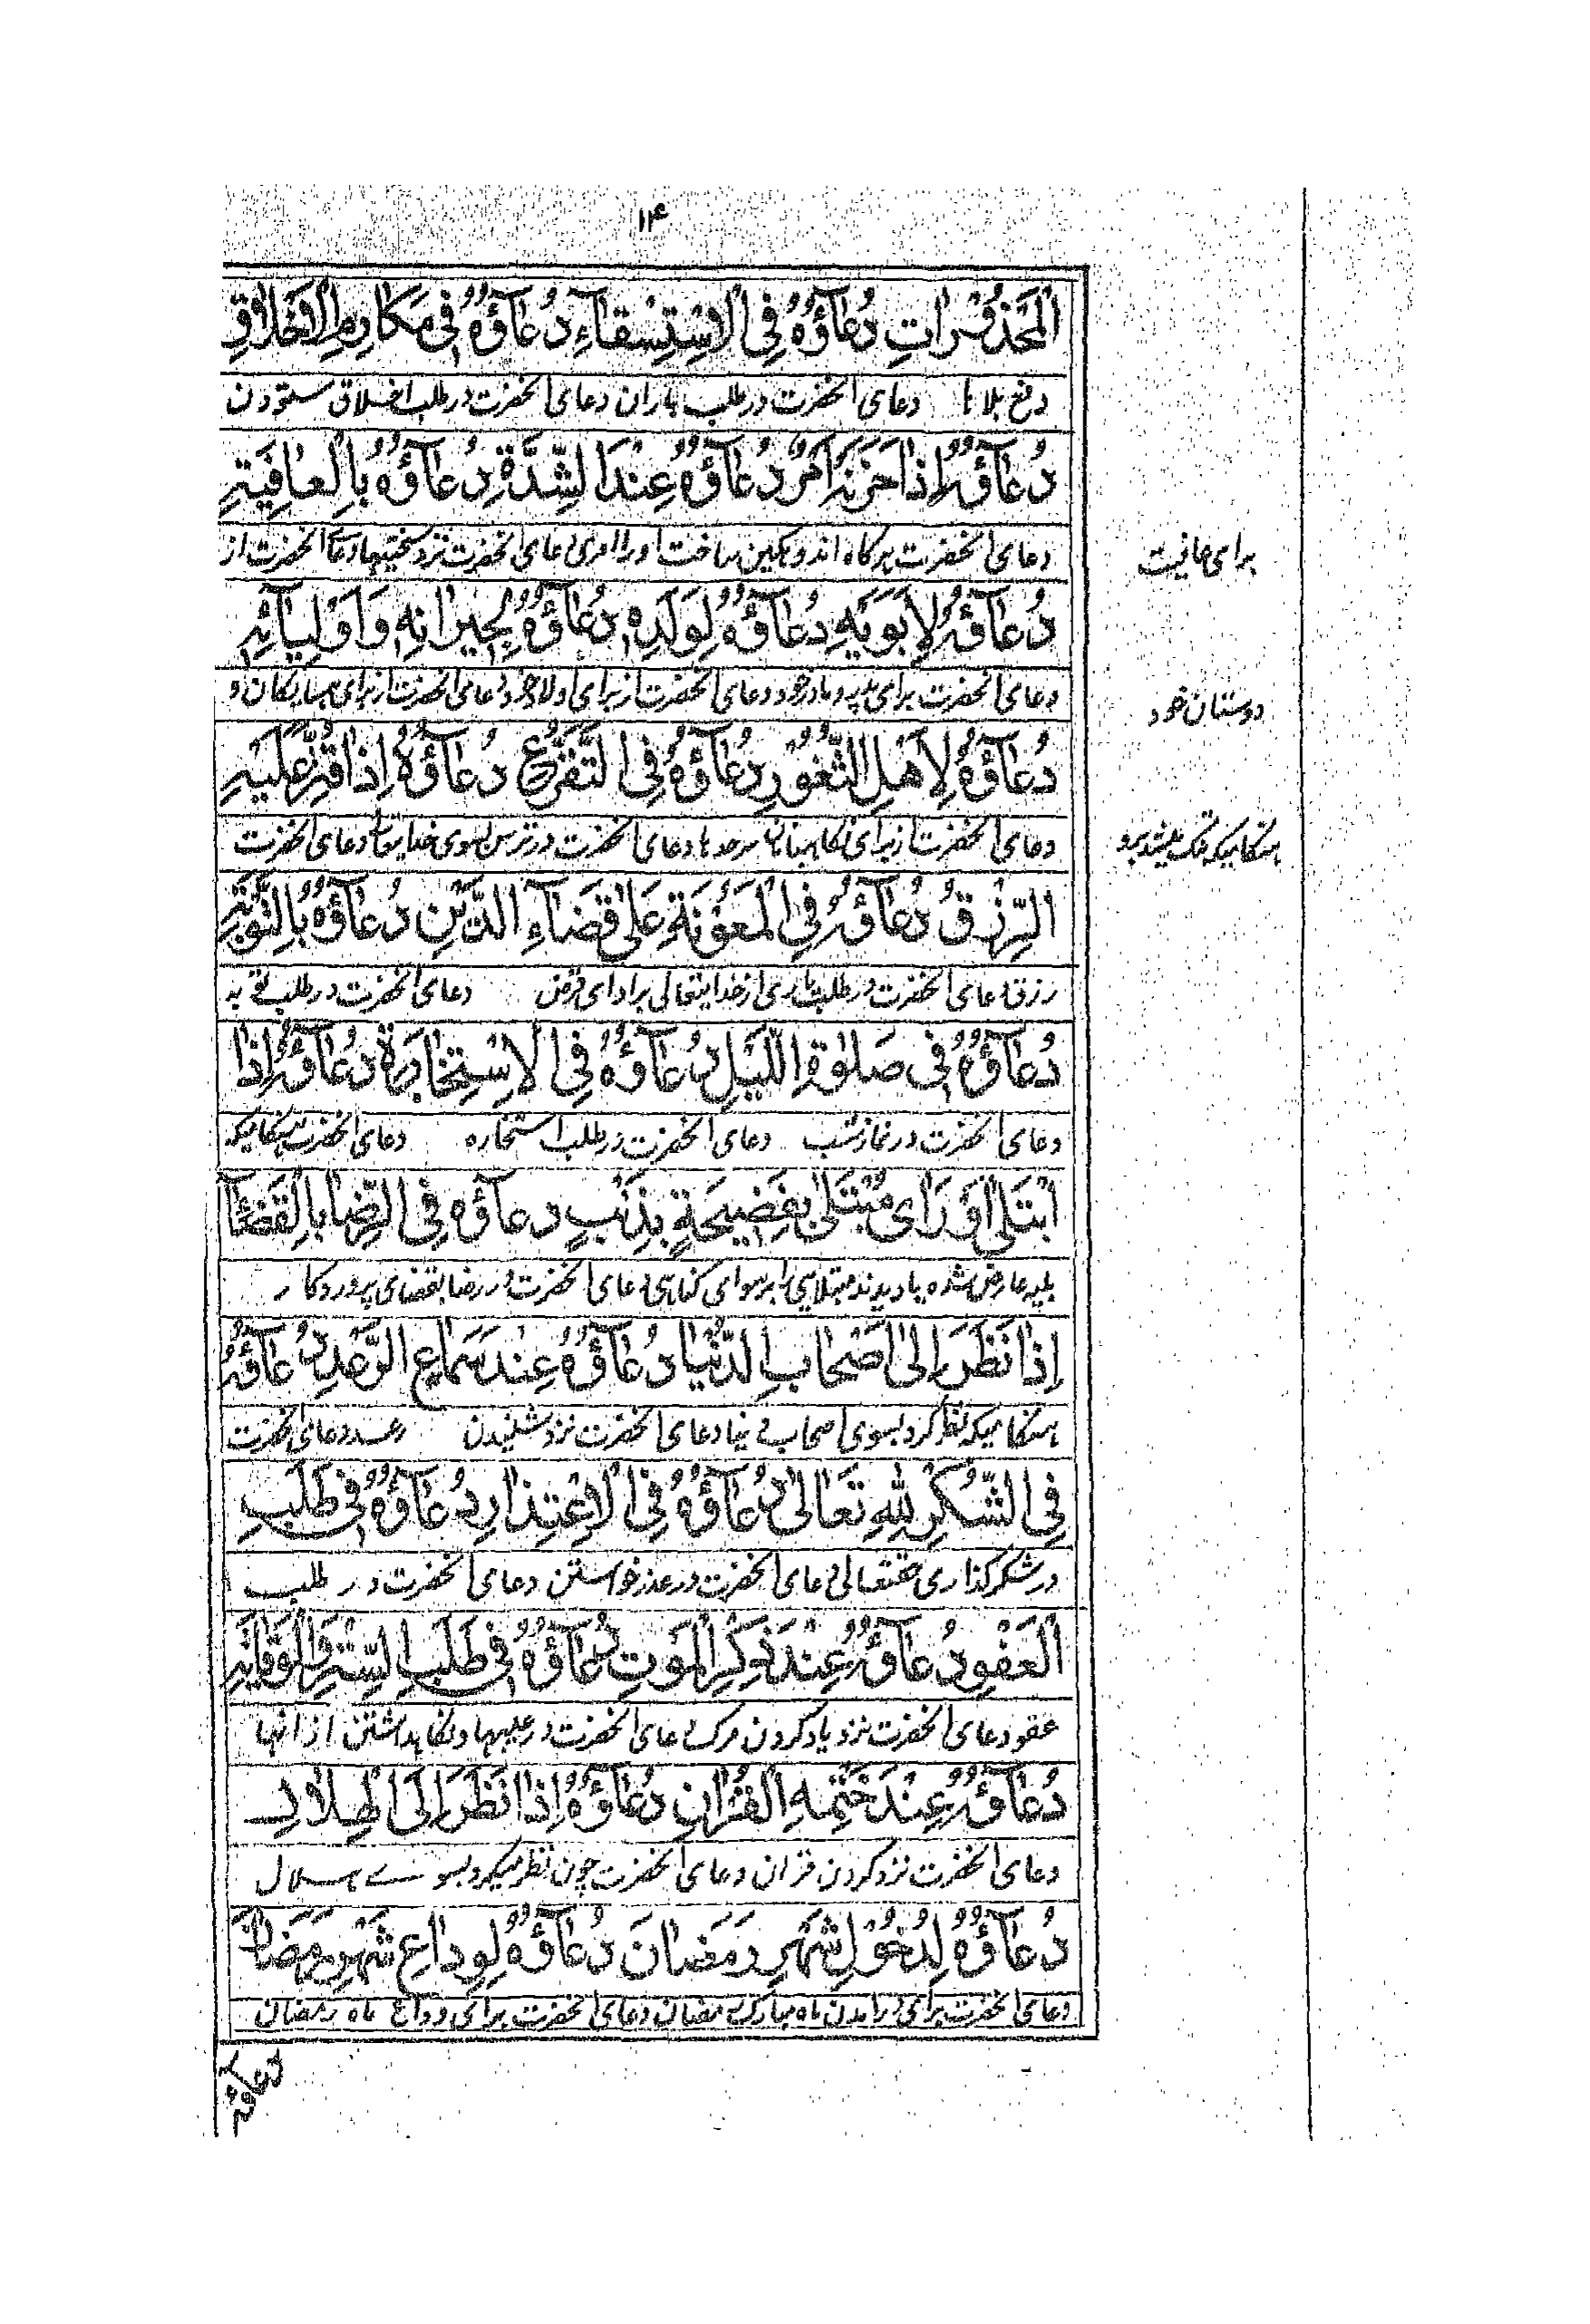 ۱۴
الْمَحْذُوْرَاتِ دُعَاؤُهٗ فِی الْاِسْتِسْقَآءِ دُعَاؤُهٗ فِیْ مَكَارِمِ الْاَخْلَاقِ
دفع بلاها دعای آنحضرت در طلب باران دعای آنحضرت در طلب اخلاق ستودن
دُعَاؤُهٗ اِذَا حَزَنَهٗ اَمْرٌ دُعَاؤُهٗ عِنْدَ الشِّدَّةِ دُعَاؤُهٗ بِالْعَافِيَةِ
دعای آنحضرت هر گاه اندوهگین ساخت او را امری دعای آنحضرت نزد سختیها دعای آنحضرت از
برای عافیت
دُعَاؤُهٗ لِاَبَوَيْهِ دُعَاؤُهٗ لِوَلَدِهٖ دُعَاؤُهٗ لِجِيْرَانِهٖ وَ اَوْلِيَآئِهٖ
دعای آنحضرت برای پدر و مادر خود دعای آنحضرت از برای اولاد خود دعای آنحضرت از برای همسایگان و
دوستان خود
دُعَاؤُهٗ لِاَهْلِ الثُّغُوْرِ دُعَاؤُهٗ فِی التَّفَزُّعِ دُعَاؤُهٗ اِذَا قُتِّرَ عَلَيْهِ
دعای آنحضرت از برای نگاهبانان سرحدها دعای آنحضرت در ترس بسوی خدایتعالی دعای آنحضرت
هنگامیکه تنگ میشد برو
الرِّزْقُ دُعَاؤُهٗ فِی الْمَعُوْنَةِ عَلٰی قَضَآءِ الدَّيْنِ دُعَاؤُهٗ بِالتَّوْبَةِ
رزق دعای آنحضرت در طلب یاری از خدایتعالی بر ادای قرض دعای آنحضرت در طلب توبه
دُعَاؤُهٗ فِیْ صَلٰوةِ اللَّيْلِ دُعَاؤُهٗ فِی الْاِسْتِخَارَةِ دُعَاؤُهٗ اِذَا
دعای آنحضرت در نماز شب دعای آنحضرت در طلب استخاره دعای آنحضرت هنگامیکه
ابْتَلٰی اَوْ رَاٰی مُبْتَلًی بِفَضِيْحَةٍ بِذَنْبٍ دعاؤه فِی الرِّضَا بِالْقَضَآءِ
بلیه عارض شده یا دیدند مبتلایی را برسوای گناهی دعای آنحضرت در رضا بقضای پروردگار
اِذَا نَظَرَ اِلٰی اَصْحَابِ الدُّنْيَا دُعَاؤُهٗ عِنْدَ سَمَاعِ الرَّعْدِ دُعَاؤُهٗ
هنگامیکه نظر کرد بسوی اصحاب دنیا دعای آنحضرت نزد شنیدن رعد دعای آنحضرت
فِی الشُّكْرِ لِلّٰهِ تَعَالٰی دُعَاؤُهٗ فِی الْاِعْتِذَارِ دُعَاؤُهٗ فِیْ طَلَبِ
در شکرگذاری حقتعالی دعای آنحضرت در عذر خواستن دعای آنحضرت در طلب
الْعَفْوِ دُعَاؤُهٗ عِنْدَ ذِكْرِ الْمَوْتِ دُعَاؤُهٗ فِیْ طَلَبِ السِّتْرِ وَالْوِقَايَةِ
عفو دعای آنحضرت نزد یاد کردن مرگ دعای آنحضرت در عیبها و نگاهداشتن از انها
دُعَاؤُهٗ عِنْدَ خَتْمِهِ الْقُرْاٰنَ دُعَاؤُهٗ اِذَا نَظَرَ اِلَی الْهِلَالِ
دعای آنحضرت نزد کردن قران دعای آنحضرت چون نظر میکرد بسوے هلال
دُعَاؤُهٗ لِدُخُوْلِ شَهْرِ رَمَضَانَ دُعَاؤُهٗ لِوِدَاعِ شَهْرِ رَمَضَانَ
دعای آنحضرت برای درامدن ماه مبارک رمضان دعای آنحضرت برای وداع ماه رمضان
دعاؤه